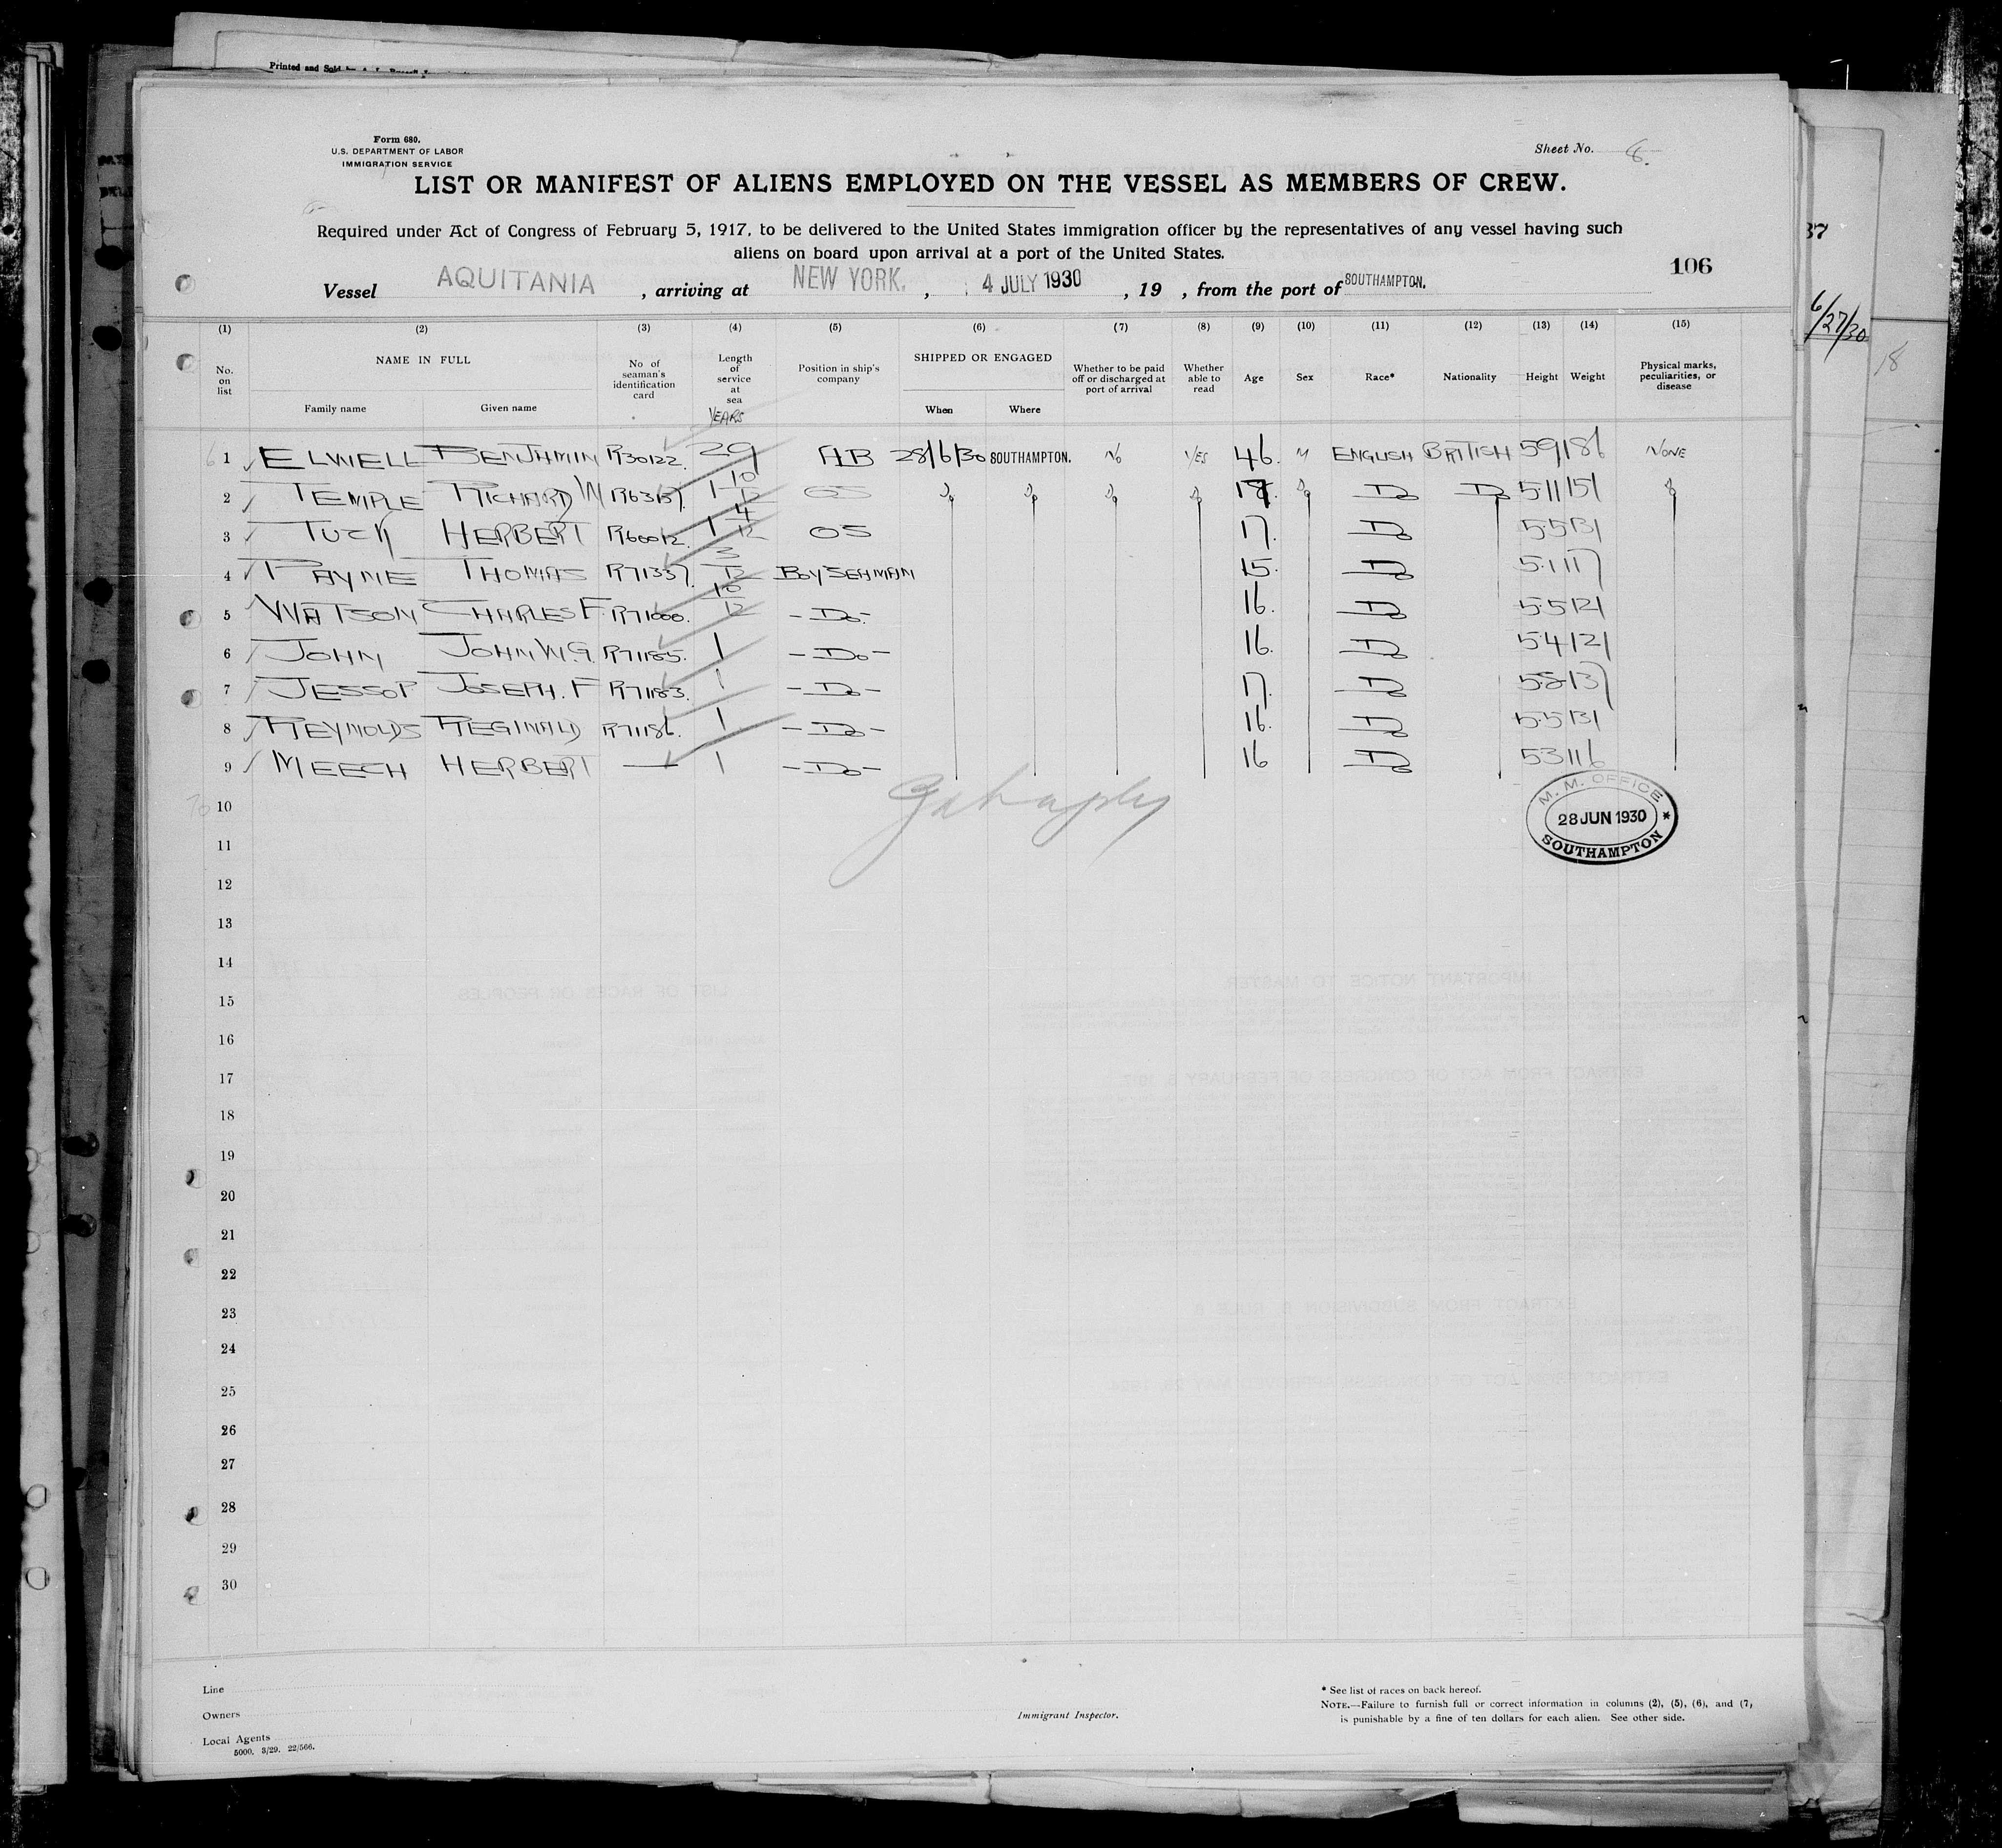 Printed and Sold
Form 680.
U.S. DEPARTMENT OF LABOR
IMMIGRATION SERVICE
Sheet No. 6.
LIST OR MANIFEST OF ALIENS EMPLOYED ON THE VESSEL AS MEMBERS OF CREW.
Required under Act of Congress of February 5, 1917, to be delivered to the United States immigration officer by the representatives of any vessel having such
aliens on board upon arrival at a port of the United States.
106
Vessel AQUITANIA , arriving at NEW YORK. , 4 JULY 1930 , 19 , from the port of SOUTHAMPTON.
6/27/30
18
(1) (2) (3) (4) (5) (6) (7) (8) (9) (10) (11) (12) (13) (14) (15)
No. on list NAME IN FULL Family name Given name No of seaman's identification card Length of service at sea YEARS Position in ship's company SHIPPED OR ENGAGED When Where Whether to be paid off or discharged at port of arrival Whether able to read Age Sex Race* Nationality Height Weight Physical marks, peculiarities, or disease
1 ELWELL BENJAMIN R30122. 29 AB 28/6/30 SOUTHAMPTON. No YES 46. M ENGLISH BRITISH 59 186 NONE
2 TEMPLE RICHARD W R63157. 1 10/12 OS Do Do Do Do Do Do Do 511 151 Do
3 TUCK HERBERT R60012. 1 4/12 OS 17. Do 5.5 131
4 PAYNE THOMAS R71337. 3/12 BOY SEAMAN 15. Do 5.1 117
5 WATSON CHARLES F R71000. 10/12 -Do- 16. Do 5.5 121
6 JOHN JOHN W.G. R71185. 1 -Do- 16. Do 54 121
7 JESSOP JOSEPH. F R71183. 1 -Do- 17. Do 5.8 137
8 REYNOLDS REGINALD R71186. 1 -Do- 16. Do 5.5 131
9 MEECH HERBERT — 1 -Do- 16 Do 53 116
10
M. M. OFFICE
28 JUN 1930
SOUTHAMPTON
11
12
13
14
15
16
17
18
19
20
21
22
23
24
25
26
27
28
29
30
Line
Owners
Local Agents
5000. 3/29. 22/566.
Immigrant Inspector.
* See list of races on back hereof.
NOTE.—Failure to furnish full or correct information in columns (2), (5), (6), and (7,
is punishable by a fine of ten dollars for each alien. See other side.